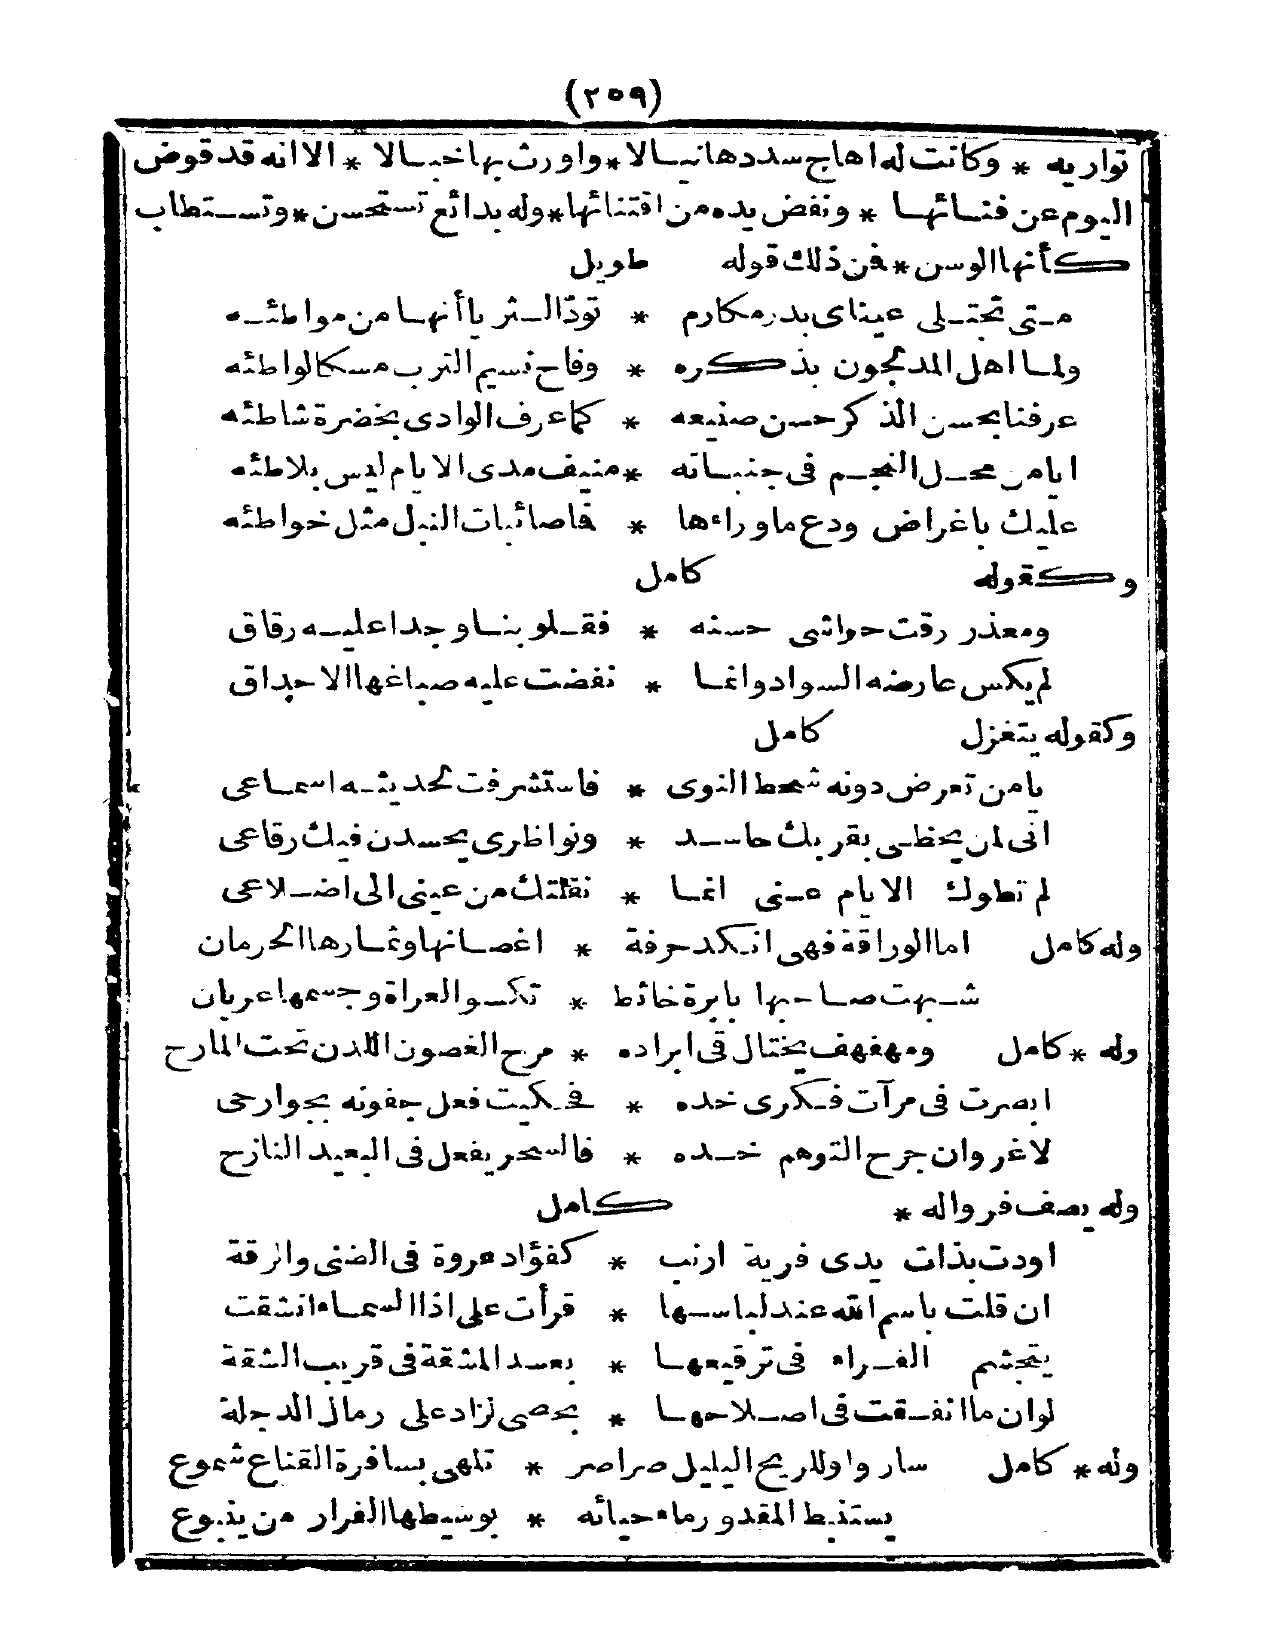 (٢٥٩)
تواريه * وكانت له اهاج سددها نبالا * واورث بها خبالا * الا انه قد قوض
اليوم عن فنائها * ونفض يده من اقتنائها * وله بدائع تستحسن * وتستطاب
كأنها الوسن * فمن ذلك قوله طويل
متى تجتلى عيناى بدر مكارم * تودّ الثريا أنها من مواطئه
ولما اهل المدلجون بذكره * وفاح نسيم الترب مسكا لواطئه
عرفنا بحسن الذكر حسن صنيعه * كما عرف الوادى بخضرة شاطئه
ايا من محل النجم فى جنباته * منيف مدى الايام ليس بلاطئه
عليك باغراض ودع ما وراءها * فاصائبات النبل مثل خواطئه
وكقوله كامل
ومعذر رقت حواشى حسنه * فقلوبنا وجدا عليه رقاق
لم يكس عارضه السواد وانما * نفضت عليه صباغها الاحداق
وكقوله يتغزل كامل
يا من تعرض دونه شحط النوى * فاستشرفت لحديثه اسماعى
انى لمن يحظى بقربك حاسد * ونواظرى يحسدن فيك رقاعى
لم تطوك الايام عنى انما * نقلتك من عينى الى اضلاعى
وله كامل اما الوراقة فهى انكد حرفة * اغصانها وثمارها الحرمان
شبهت صاحبها بابرة خائط * تكسو العراة وجسمها عريان
وله * كامل ومهفهف يختال فى ابراده * مرح الغصون اللدن تحت المارح
ابصرت فى مرآت فكرى خده * فحكيت فعل جفونه بجوارحى
لا غروان جرح التوهم خده * فالسحر يفعل فى البعيد النازح
وله يصف فروا له * كامل
اودت بذات يدى فرية ارنب * كفؤاد عروة فى الضنى والرقة
ان قلت باسم الله عند لباسها * قرأت على اذا السماء انشقت
يتجشم الفراء فى ترقيعها * بعد المشقة فى قريب الشقة
لوان ما انفقت فى اصلاحها * يحصى لزاد على رمال الدجلة
وله * كامل سار والريح البليل صراصر * تلهى بسافرة القناع شموع
يستنبط المقدور ماء حيائه * بوسيطها الفرار من ينبوع